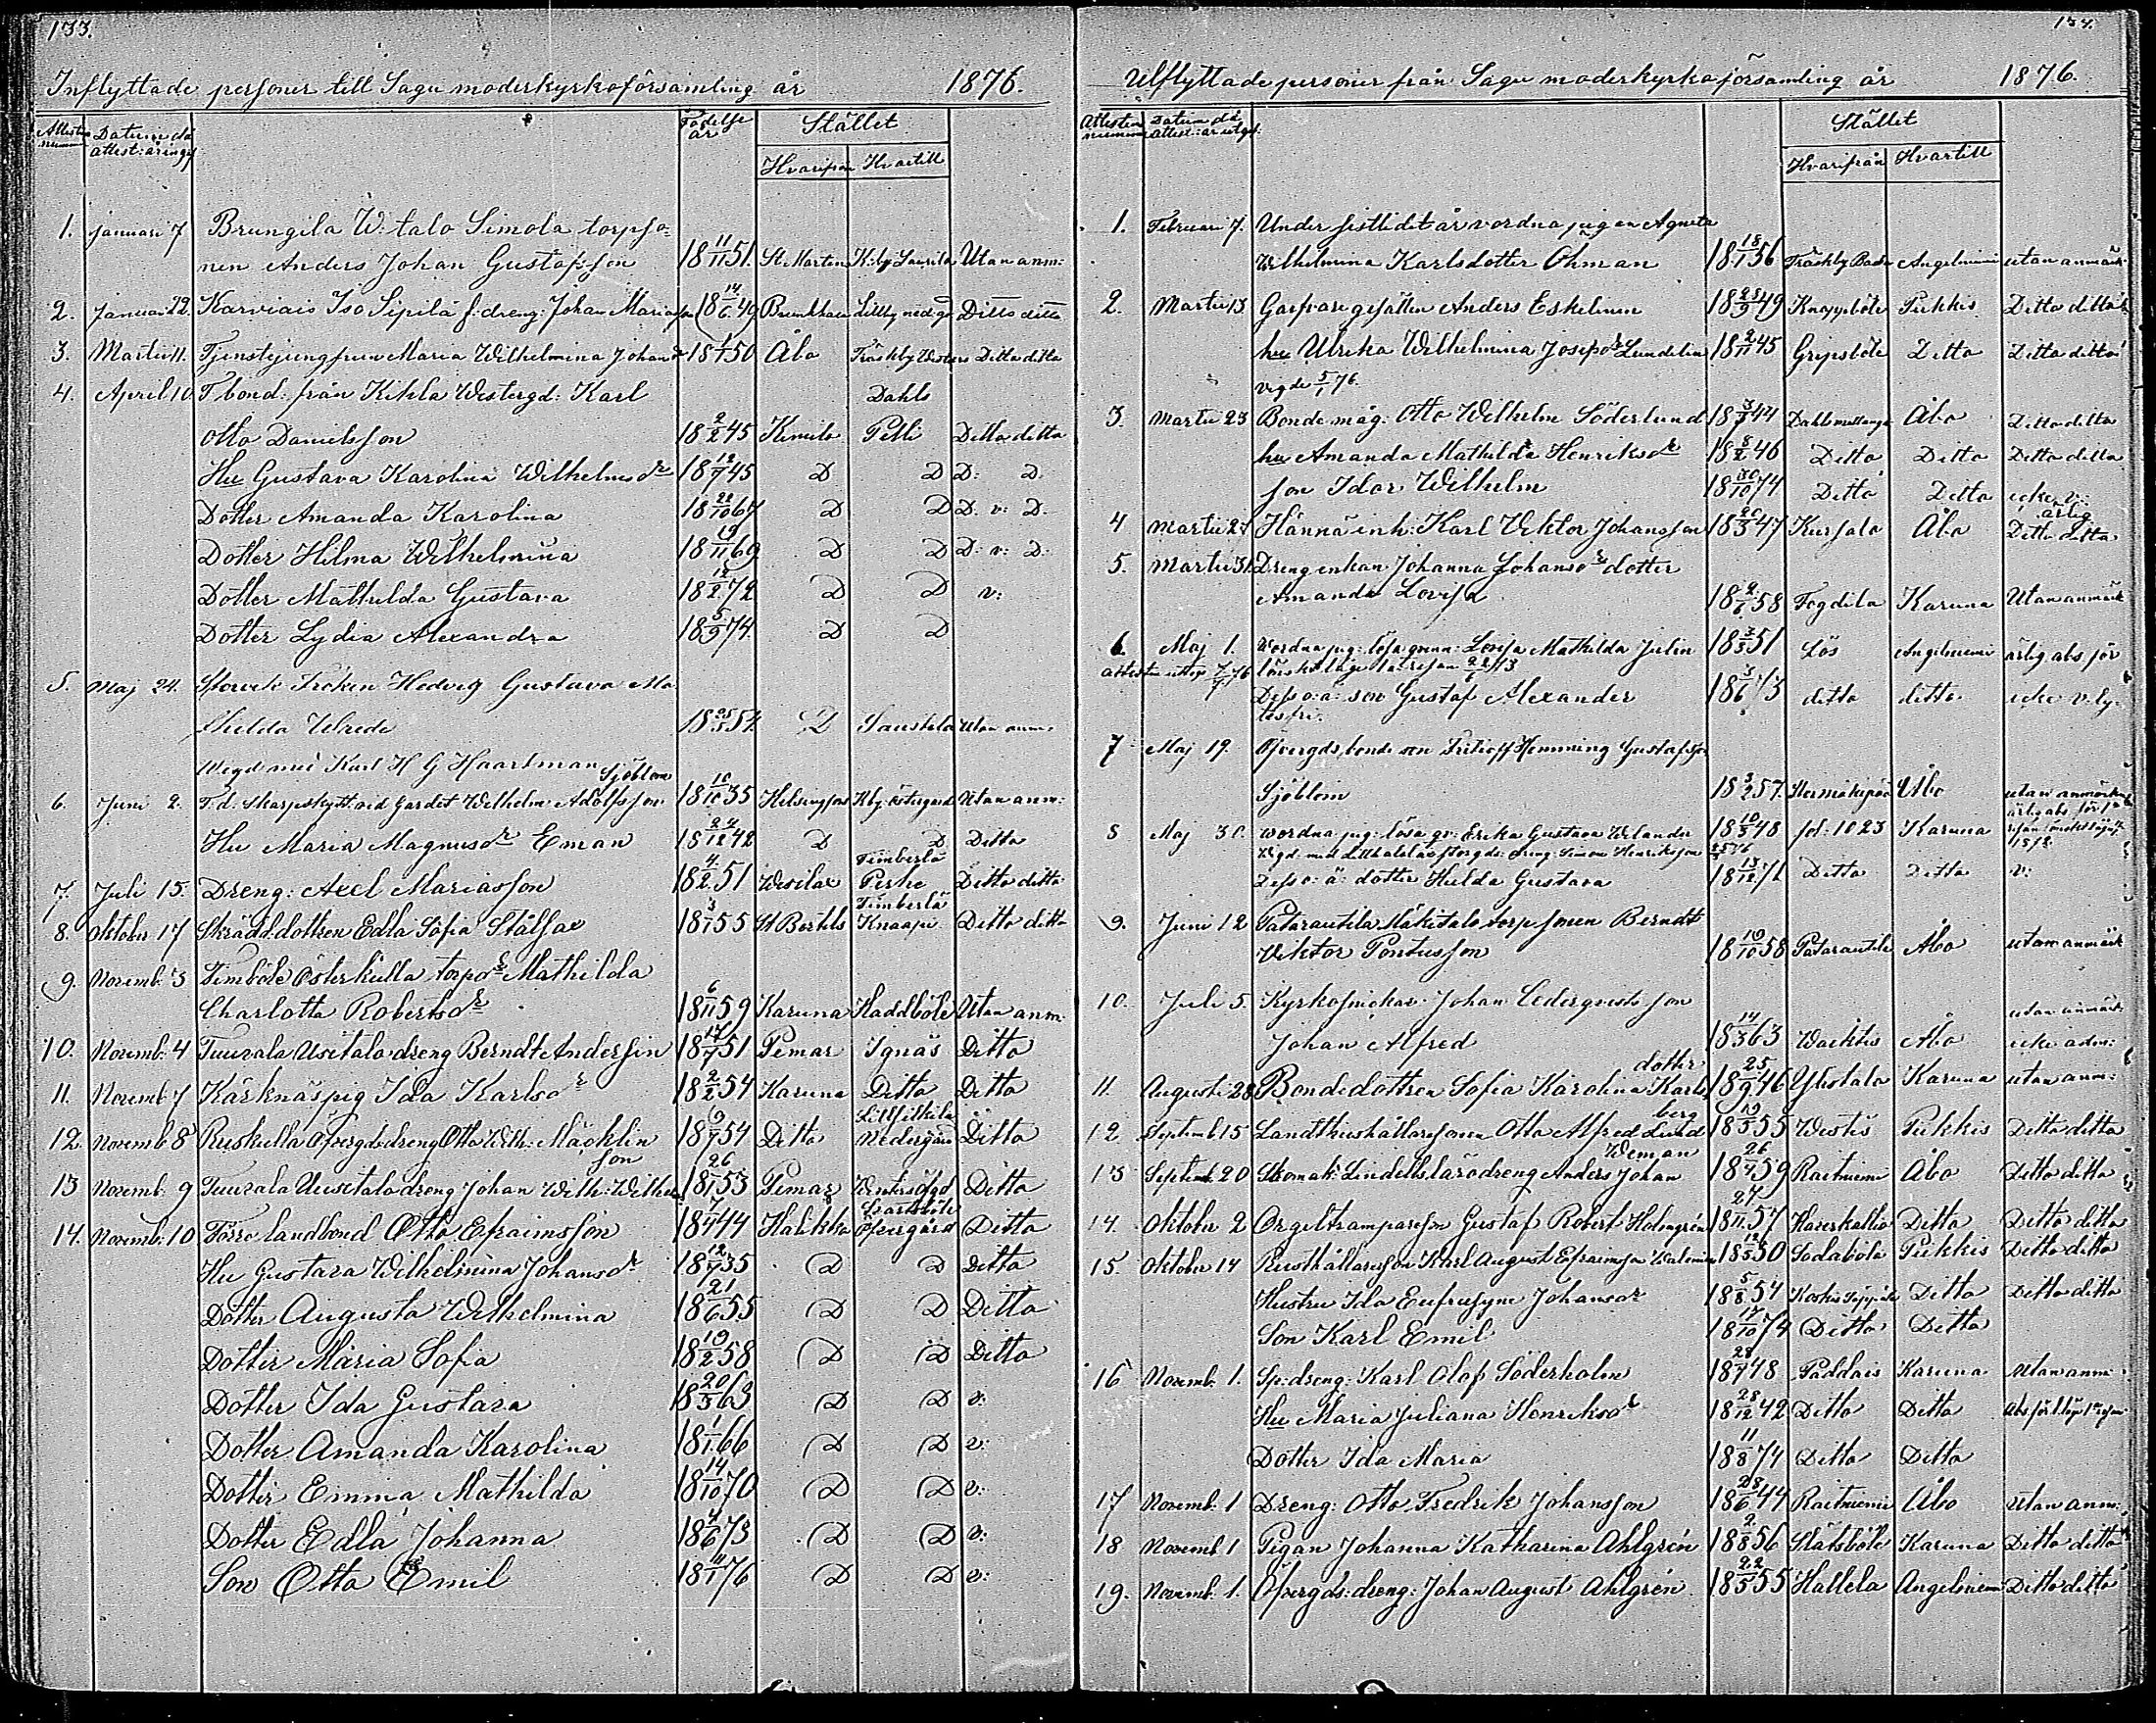 133.
Inflyttade personer till Sagu moderkyrkoförsamling år 1876.
Attestens nummer Datum då attest: är ingif Födelse år Stället
Hvarifrån Hvartill
1. Januari 7 Brungila W: talo Simola torpso=
nen Anders Johan Gustafsson 18 11/11 51. St Martens K:by Laurila Utan anm:
2. Januari 22. Karviais Iso Sipilä f: dreng: Johan Mariasson 18 14/6 49 Brunkhala Lillby nedg: Ditto ditto
3. Martii 11. Tjenstejungfrun Maria Wilhelmina Johansdr 18 1/1 50 Åbo Träskby Westers Ditto ditto
4. April 10 F bond: från Kikla Westergd: Karl Dahls
Otto Danielsson 18 2/2 45 Kimito Pelli Ditto ditto
Hu Gustava Karolina Wilhelmsdr 18 12/7 45 D D D: D.
Dotter Amanda Karolina 18 22/10 67 D D D. v: D.
Dotter Hilma Wilhelmina 18 19/11 69 D D D: v: D.
Dotter Mathilda Gustava 18 12/2 72 D D v:
Dotter Lydia Alexandra 18 5/9 74. D D
5. Maj 24. Fröken Hedvig Gustava Ma
thilda Wrede 18 25/5 52 D Saustila Utan anm.
Wigd med Karl H G Haartman
Sjöblom
6. Juni 2. F.d. Skarpskytt vid Gardet Wilhelm Adolfsson 18 10/10 35 Helsingfors Kby Östergård Utan anm:
Hu Maria Magnusdr Eman 18 24/12 42 D D Ditto
Timberla
7. Juli 15. Dreng: Axel Mariasson 18 4/2 51 Wesilax Perhe Ditto ditto
Timberla
8. Oktober 17 Skrädd.dottren Edla Sofia Stålfax 18 3/1 55 St Bertils Knaapi Ditto ditto
9. Novemb: 3 Timböle Österkulla torpdr Mathilda
Charlotta Robertsdr 18 6/11 59 Karuna Haddböle Utan anm.
10. Novemb. 4 Tuurala Usitalo dreng Berndt Andersin 18 17/7 51 Pemar Ignäs Ditto
11. Novemb 7 Kärknäs pig Ida Karlsdr 18 2/2 54 Karuna Ditto Ditto
12. Novemb 8 Ruskulla Öfvergds dreng Otto Wilh: Mäcklin 18 9/7 54 Ditto Nedergård Ditto
son
13 Novemb. 9 Tuurala Uusitalo dreng Johan Wilh: Wilhelms 18 26/1 53 Pemar Ditto
14. Novemb. 10 Förre landbond Otto Efraimsson 18 7/4 44 Halikko Öfvergård Ditto
Hu Gustava Wilhelmina Johansdr 18 12/7 35 D D Ditto
Dotter Augusta Wilhelmina 18 21/6 55 D D Ditto
Dotter Maria Sofia 18 19/2 58 D D Ditto
Dotter Ida Gustava 18 20/3 63 D D v:
Dotter Amanda Karolina 18 1/1 66 D D v:
Dotter Emma Mathilda 18 14/10 70 D D v:
Dotter Edla Johanna 18 4/6 73 D D v:
Son Otto Emil 18 11/1 76 D D v:
134.
Utflyttade personer från Sagu moderkyrkoförsamling år 1876.
Attestens nummer Datum då attest: är utgif: Stället
Hvarifrån Hvartill
1. Februari 7. Under sistlidet år vordna pigan Agneta
Wilhelmina Karlsdotter Öhman 18 18/1 56 Träskby Angelniemi utan anmärk
2. Martii 13. Garfvaregesällen Anders Eskelinen 18 25/9 49 Knappböle Pikkis Ditto ditto
hu Ulrika Wilhelmina Josefsdr Lundelin 18 2/11 45 Gripsböle Ditto Ditto ditto
vigde 5/1 76.
3. Martii 23 Bondemåg: Otto Wilhelm Söderlund 18 3/7 44 Åbo Ditto ditto
hu Amanda Mathilda Henriksdr 18 8/2 46 Ditto Ditto Ditto ditto
son Idor Wilhelm 18 30/10 74 Ditto Ditto icke v:
ärlig
4 Martii 27 Hännä inh: Karl Viktor Johansson 18 20/3 47 Kursalo Åbo Ditto ditto
5. Martii 31. Drengenkan Johanna Johansdr dotter
Amanda Lovisa 18 2/6 58 Fogdila Karuna Utan anmärk
6. Maj 1. Wordna pig: lösa qvinn: Lovisa Mathilda Julin 18 3/3 51 Lös Angelniemi ärlig abs för
Dess o: ä: son Gustaf Alexander 18 3/6 73 ditto ditto icke v.
7 Maj 19. Öfvergds bonde son Fritioff Hemming Gustafsson
Sjöblom 18 3/2 57. Åbo utan anmärkn
8 Maj 30. Wordna pig: lösa qv: Erika Gustava Welander 18 10/3 48 fol: 1023 Karuna
Dess o: ä: dotter Hulda Gustava 18 13/12 71 Ditto Ditto v:
9. Juni 12 Patarautila Mäkitalo torpsonen Berndt
Viktor Pontusson 18 19/10 58 Patarautila Åbo utan anmärk
10. Juli 5. Kyrkosnickar: Johan Cederqvists son utan anmärk
Johan Alfred 18 14/3 63 Wachtis Åbo icke adm:
dotter
11. Augusti 28 Bondedottren Sofia Karolina Karls 18 25/9 46 Ylistalo Karuna utan anm:
berg
12 Septemb 15 Landthushållaresonen Otto Alfred Lind 18 19/5 55 Westis Pikkis Ditto ditto
Weman
13 Septemb. 20 Skomak: Lindells lärodreng Anders Johan 18 26/7 59 Raitniemi Åbo Ditto ditto
14. Oktober 2 Orgeltramparesin Gustaf Robert Holmgrén 18 27/11 57 Haverkallio Ditto Ditto ditto
15. Oktober 14 Rusthållareson Karl August Efraimsson Walenius 18 12/5 50 Sodaböle Pikkis Ditto ditto
Hustru Ida Eufrosyne Johansdr 18 5/8 54 Ditto Ditto ditto
Son Karl Emil 18 17/10 74 Ditto Ditto
16 Novemb. 1. Sp: dreng: Karl Olof Söderholm 18 28/7 48 Paddais Karuna Utan anm.
Hu Maria Juliana Henriksdr 18 28/12 42 Ditto Ditto
Dotter Ida Maria 18 11/8 74 Ditto Ditto
17 Novemb: 1 Dreng: Otto Fredrik Johansson 18 28/6 44 Raitniemi Åbo utan anm:
18 Novemb 1 Pigan Johanna Katharina Ahlgrén 18 2/8 56 Slätsböle Karuna Ditto ditto
19. Novemb. 1. Öfvergds: dreng: Johan August Ahlgrén 18 22/5 55 Hallela Angelniemi Ditto ditto